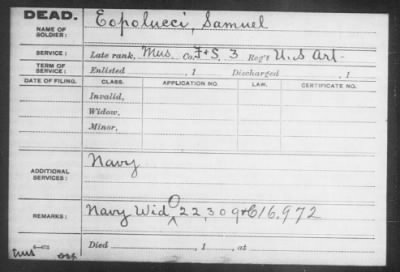 DEAD.
NAME OF SOLDIER: Eopolucci, Samuel
SERVICE: Late rank, Mus Co. F+S, 3 Reg't U.S Art-
TERM OF SERVICE: Enlisted , 1 Discharged , 1
DATE OF FILING. CLASS. APPLICATION NO. LAW. CERTIFICATE NO.
Invalid,
Widow,
Minor,
ADDITIONAL SERVICES: Navy
REMARKS: Navy Wid O 22,309 + C 16.972
Died , 1 , at